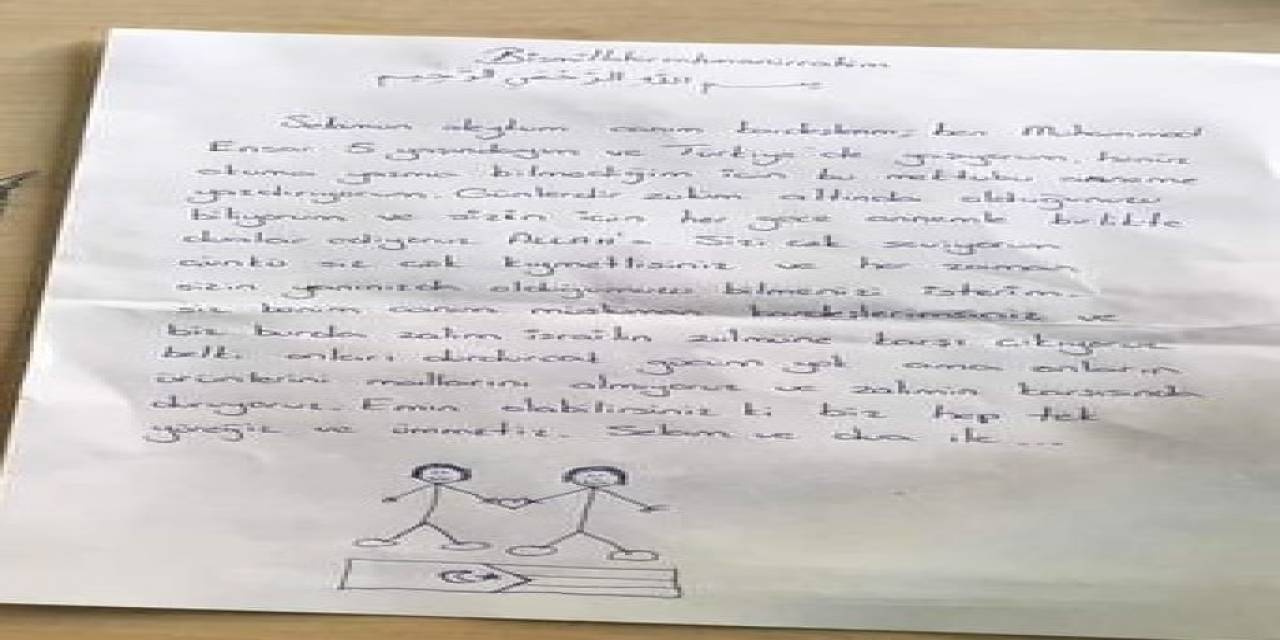 Bismillahirrahmanirrahim
بسم الله الرحمن الرحيم
Selamun aleyküm canım kardeşlerim, ben Muhammed
Ensar 5 yaşındayım ve Türkiye'de yaşıyorum. henüz
okuma yazma bilmediğim için bu mektubu anneme
yazdırıyorum. Günlerdir zulüm altında olduğunuzu
biliyorum ve sizin için her gece annemle birlikte
dualar ediyoruz ALLAH'a. Sizi çok seviyorum
çünkü siz çok kıymetlisiniz ve her zaman
sizin yanınızda olduğumuzu bilmenizi isterim.
siz benim canım müslüman kardeşlerimsiniz ve
biz burda zalim israilin zulmüne karşı çıkıyoruz
belki onları durduracak gücüm yok ama onların
ürünlerini mallarını almıyoruz ve zalimin karşısında
duruyoruz. Emin olabilirsiniz ki biz hep tek
yüreğiz ve ümmetiz. Selam ve dua ile ....